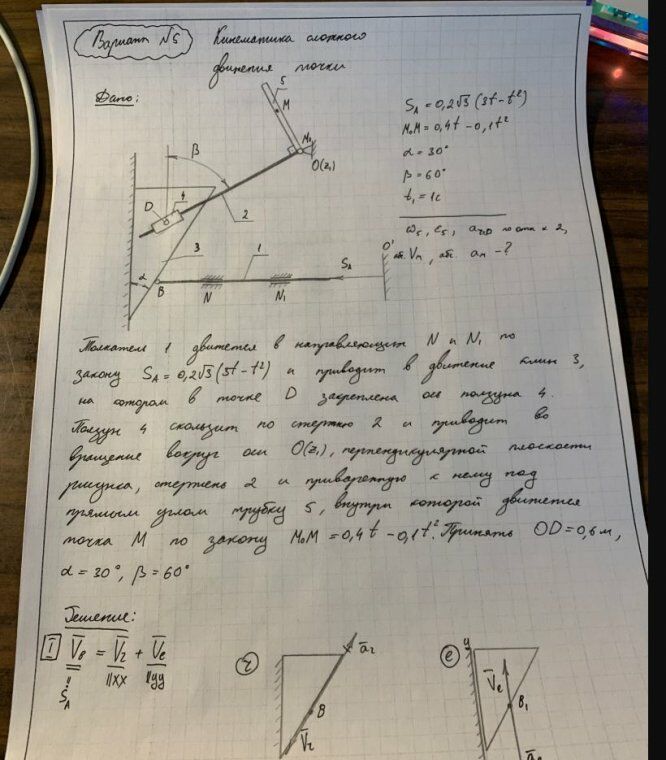 Вариант №5
Кинематика сложного
движения точки
Дано:
5
M
M₀
O(z₁)
β
D
4
2
3
1
α
B
N
N₁
Sₐ
O'
Sₐ = 0,2√3 (3t - t²)
M₀M = 0,4t - 0,1t²
α = 30°
β = 60°
t₁ = 1c
ω₅, ε₅, по отн к 2,
абс. Vₘ, абс. aₘ - ?
Толкатель 1 движется в направляющих N и N₁ по
закону Sₐ = 0,2√3 (3t - t²) и приводит в движение клин 3,
на котором в точке D закреплена ось ползуна 4.
Ползун 4 скользит по стержню 2 и приводит во
вращение вокруг оси O(z₁), перпендикулярной плоскости
рисунка, стержень 2 и приваренную к нему под
прямым углом трубку 5, внутри которой движется
точка M по закону M₀M = 0,4t - 0,1t². Принять OD = 0,6 м,
α = 30°, β = 60°
Решение:
I V̄в = V̄r + V̄e
Ṡₐ ||xx ||yy
r
ār
B
V̄r
e
y
V̄e
B₁